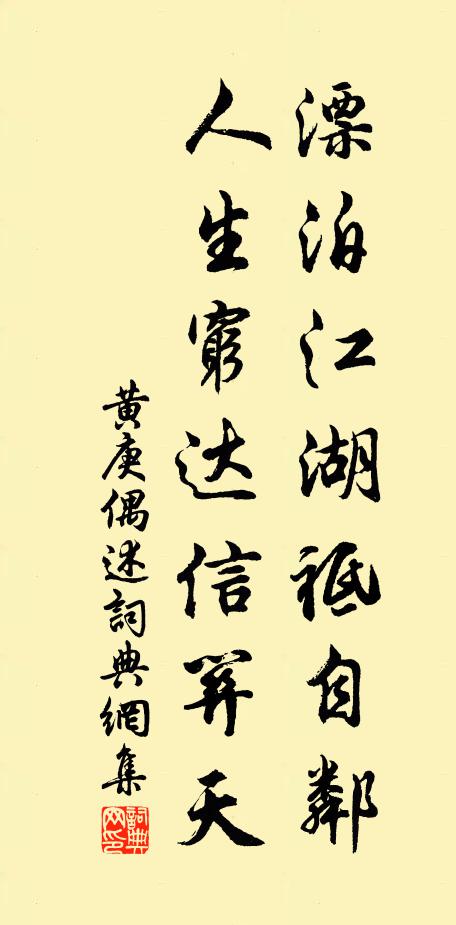 漂泊江湖祗自鄰
人生窮达信算天
黄庚偶述詞典網集
詞典网印